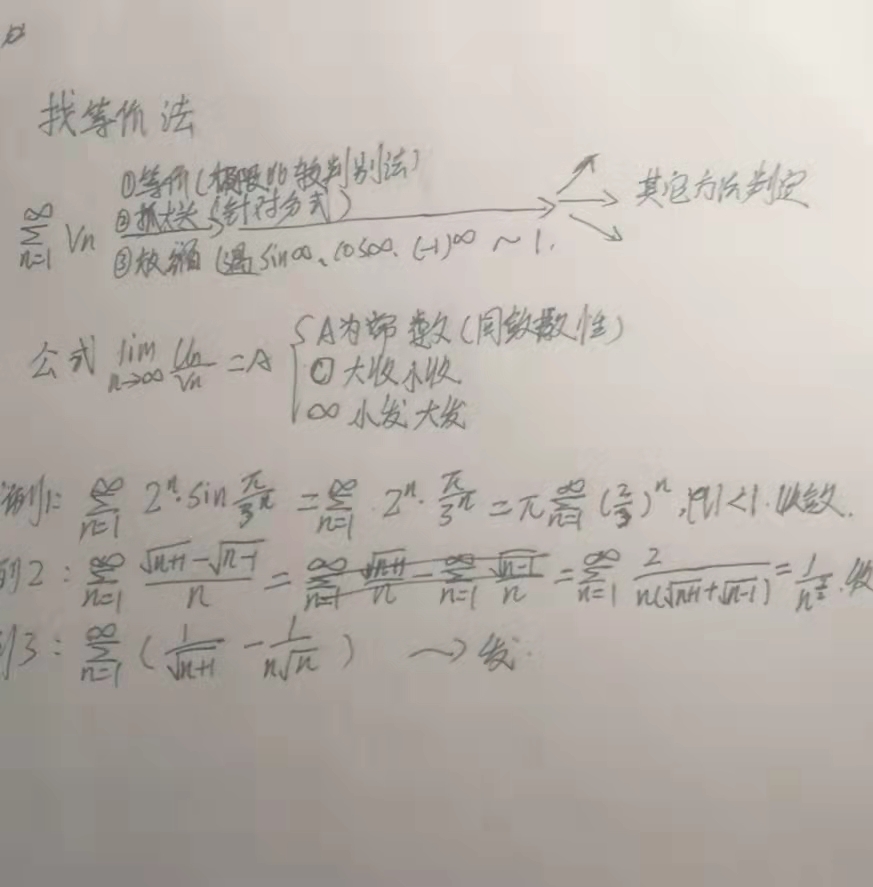 找等价法
①等价(极限比较判别法)
②抓大头(针对分式)
③放缩(遇sin∞、cos∞、(-1)^∞ ~ 1.
∑_{n=1}^{∞} Vn → 其它方法判定
公式 lim_{n→∞} Un/Vn = A { A为常数(同敛散性)
0 大收小收
∞ 小发大发
例1: ∑_{n=1}^{∞} 2^n·sin π/3^n = ∑_{n=1}^{∞} 2^n·π/3^n = π∑_{n=1}^{∞} (2/3)^n, |q|<1. 收敛.
例2: ∑_{n=1}^{∞} (√(n+1) - √(n-1))/n = ∑_{n=1}^{∞} √(n+1)/n - ∑_{n=1}^{∞} √(n-1)/n = ∑_{n=1}^{∞} 2/(n(√(n+1)+√(n-1))) = 1/n^{3/2}. 收
例3: ∑_{n=1}^{∞} (1/√(n+1) - 1/(n√n)) → 发.